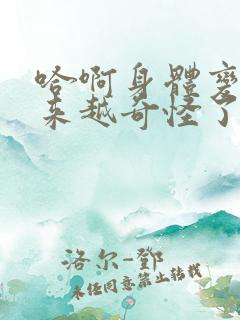 哈啊身體變
来越奇怪了
洛尔-鄧
未经同意禁止转载